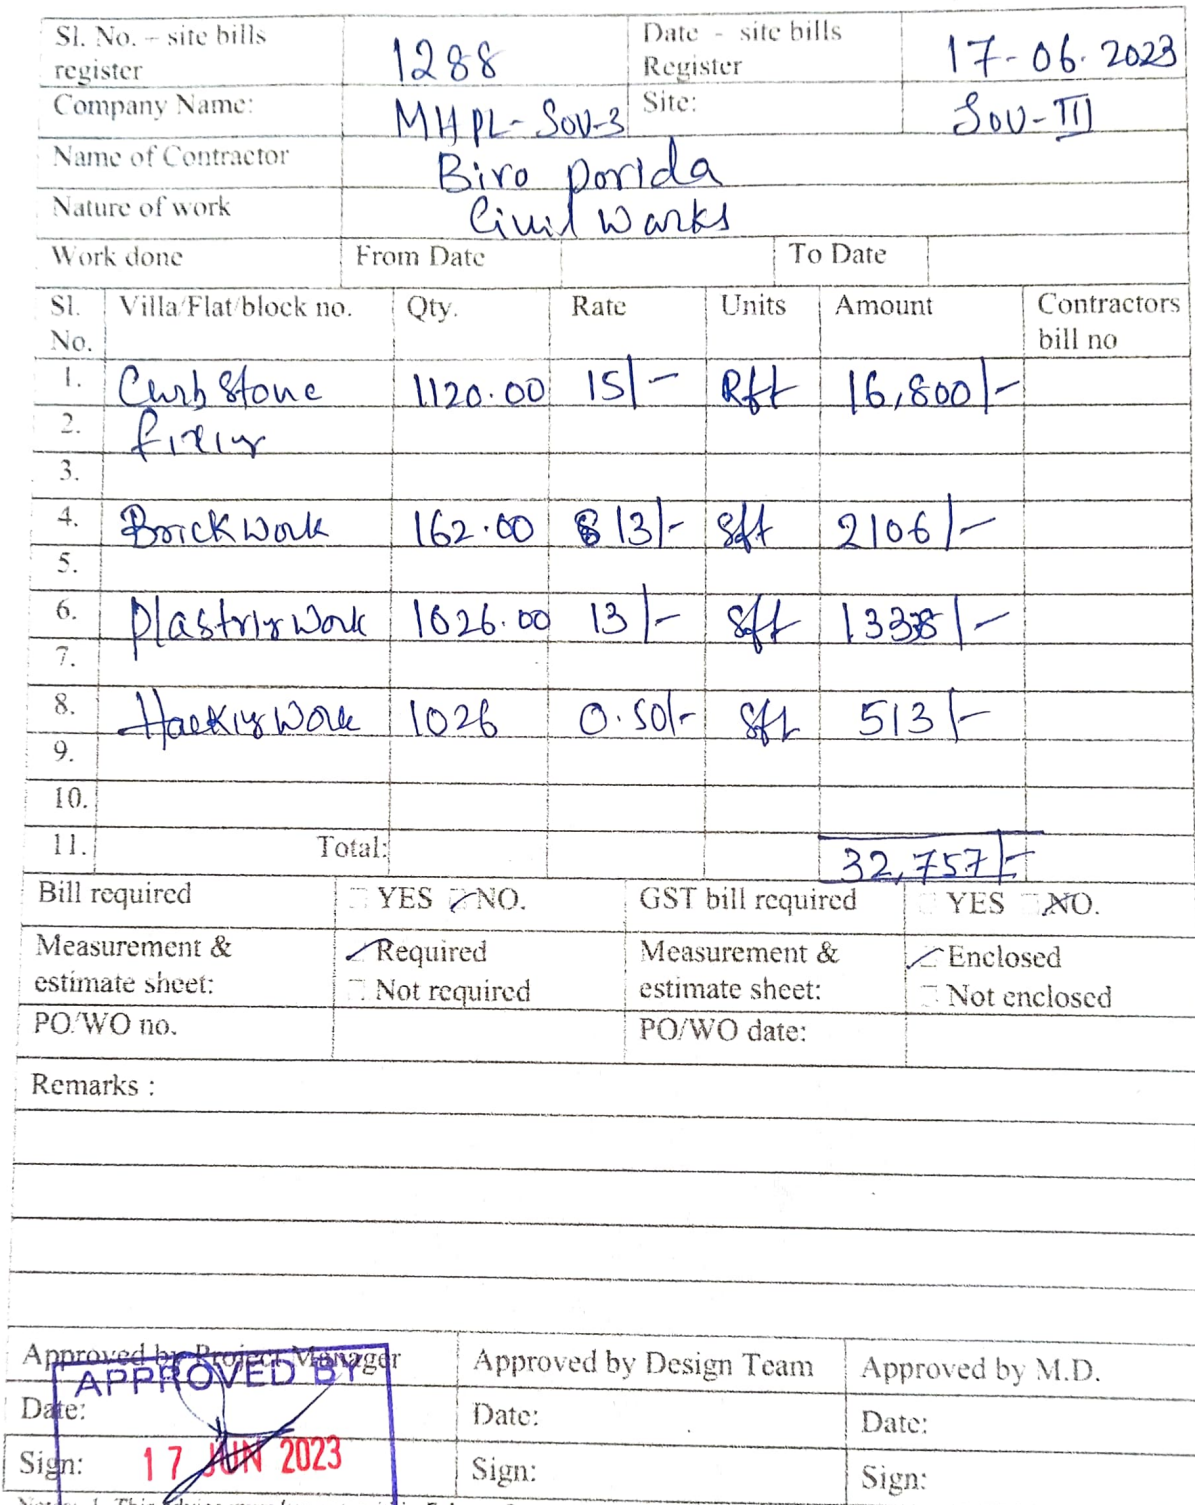 Sl. No. – site bills register 1288 Date - site bills Register 17-06.2023
Company Name: MHPL-SOV-3 Site: SOV-III
Name of Contractor Biro porida
Nature of work Civil Works
Work done From Date To Date
Sl. No. Villa/Flat/block no. Qty. Rate Units Amount Contractors bill no
1. Curb Stone 1120.00 15/- Rft 16,800/-
2. fixing
3.
4. Brick work 162.00 13/- Sft 2106/-
5.
6. Plastriy Work 1026.00 13/- Sft 13338/-
7.
8. Hackiy Work 1026 0.50/- Sft 513/-
9.
10.
11. Total: 32,757/-
Bill required YES NO. GST bill required YES NO.
Measurement & estimate sheet: Required Measurement & estimate sheet: Enclosed
Not required Not enclosed
PO/WO no. PO/WO date:
Remarks :
Approved by Project Manager Approved by Design Team Approved by M.D.
APPROVED BY
Date: Date: Date:
Sign: 17 JUN 2023 Sign: Sign: